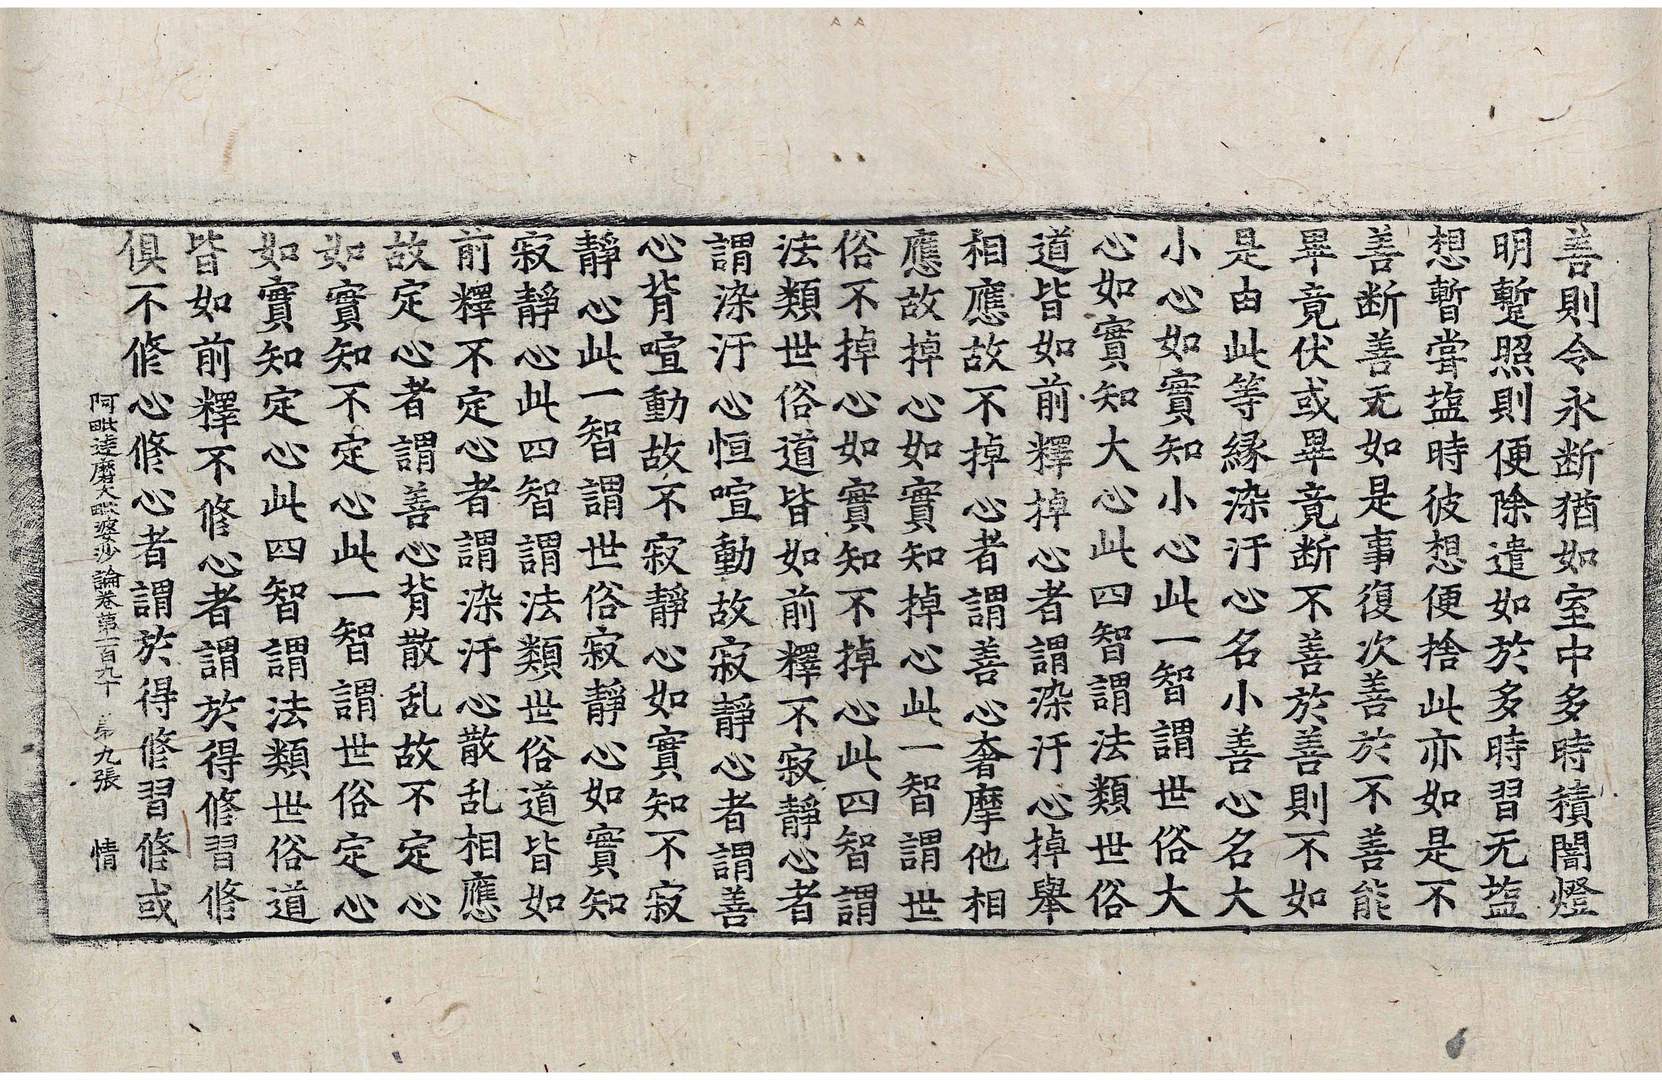 善則令永断猶如室中多時積闇燈
明蹔照則便除遣如於多時習无塩
想暫甞塩時彼想便捨此亦如是不
善断善无如是事復次善於不善能
畢竟伏或畢竟断不善於善則不如
是由此等緣染汙心名小善心名大
小心如實知小心此一智謂世俗大
心如實知大心此四智謂法類世俗
道皆如前釋掉心者謂染汙心掉舉
相應故不掉心者謂善心奢摩他相
應故掉心如實知掉心此一智謂世
俗不掉心如實知不掉心此四智謂
法類世俗道皆如前釋不寂靜心者
謂染汙心恒喧動故寂靜心者謂善
心背喧動故不寂靜心如實知不寂
靜心此一智謂世俗寂靜心如實知
寂靜心此四智謂法類世俗道皆如
前釋不定心者謂染汙心散乱相應
故定心者謂善心背散乱故不定心
如實知不定心此一智謂世俗定心
如實知定心此四智謂法類世俗道
皆如前釋不修心者謂於得修習修
俱不修心修心者謂於得修習修或
阿毗達磨大毗婆沙論卷第一百九十 第九張 情